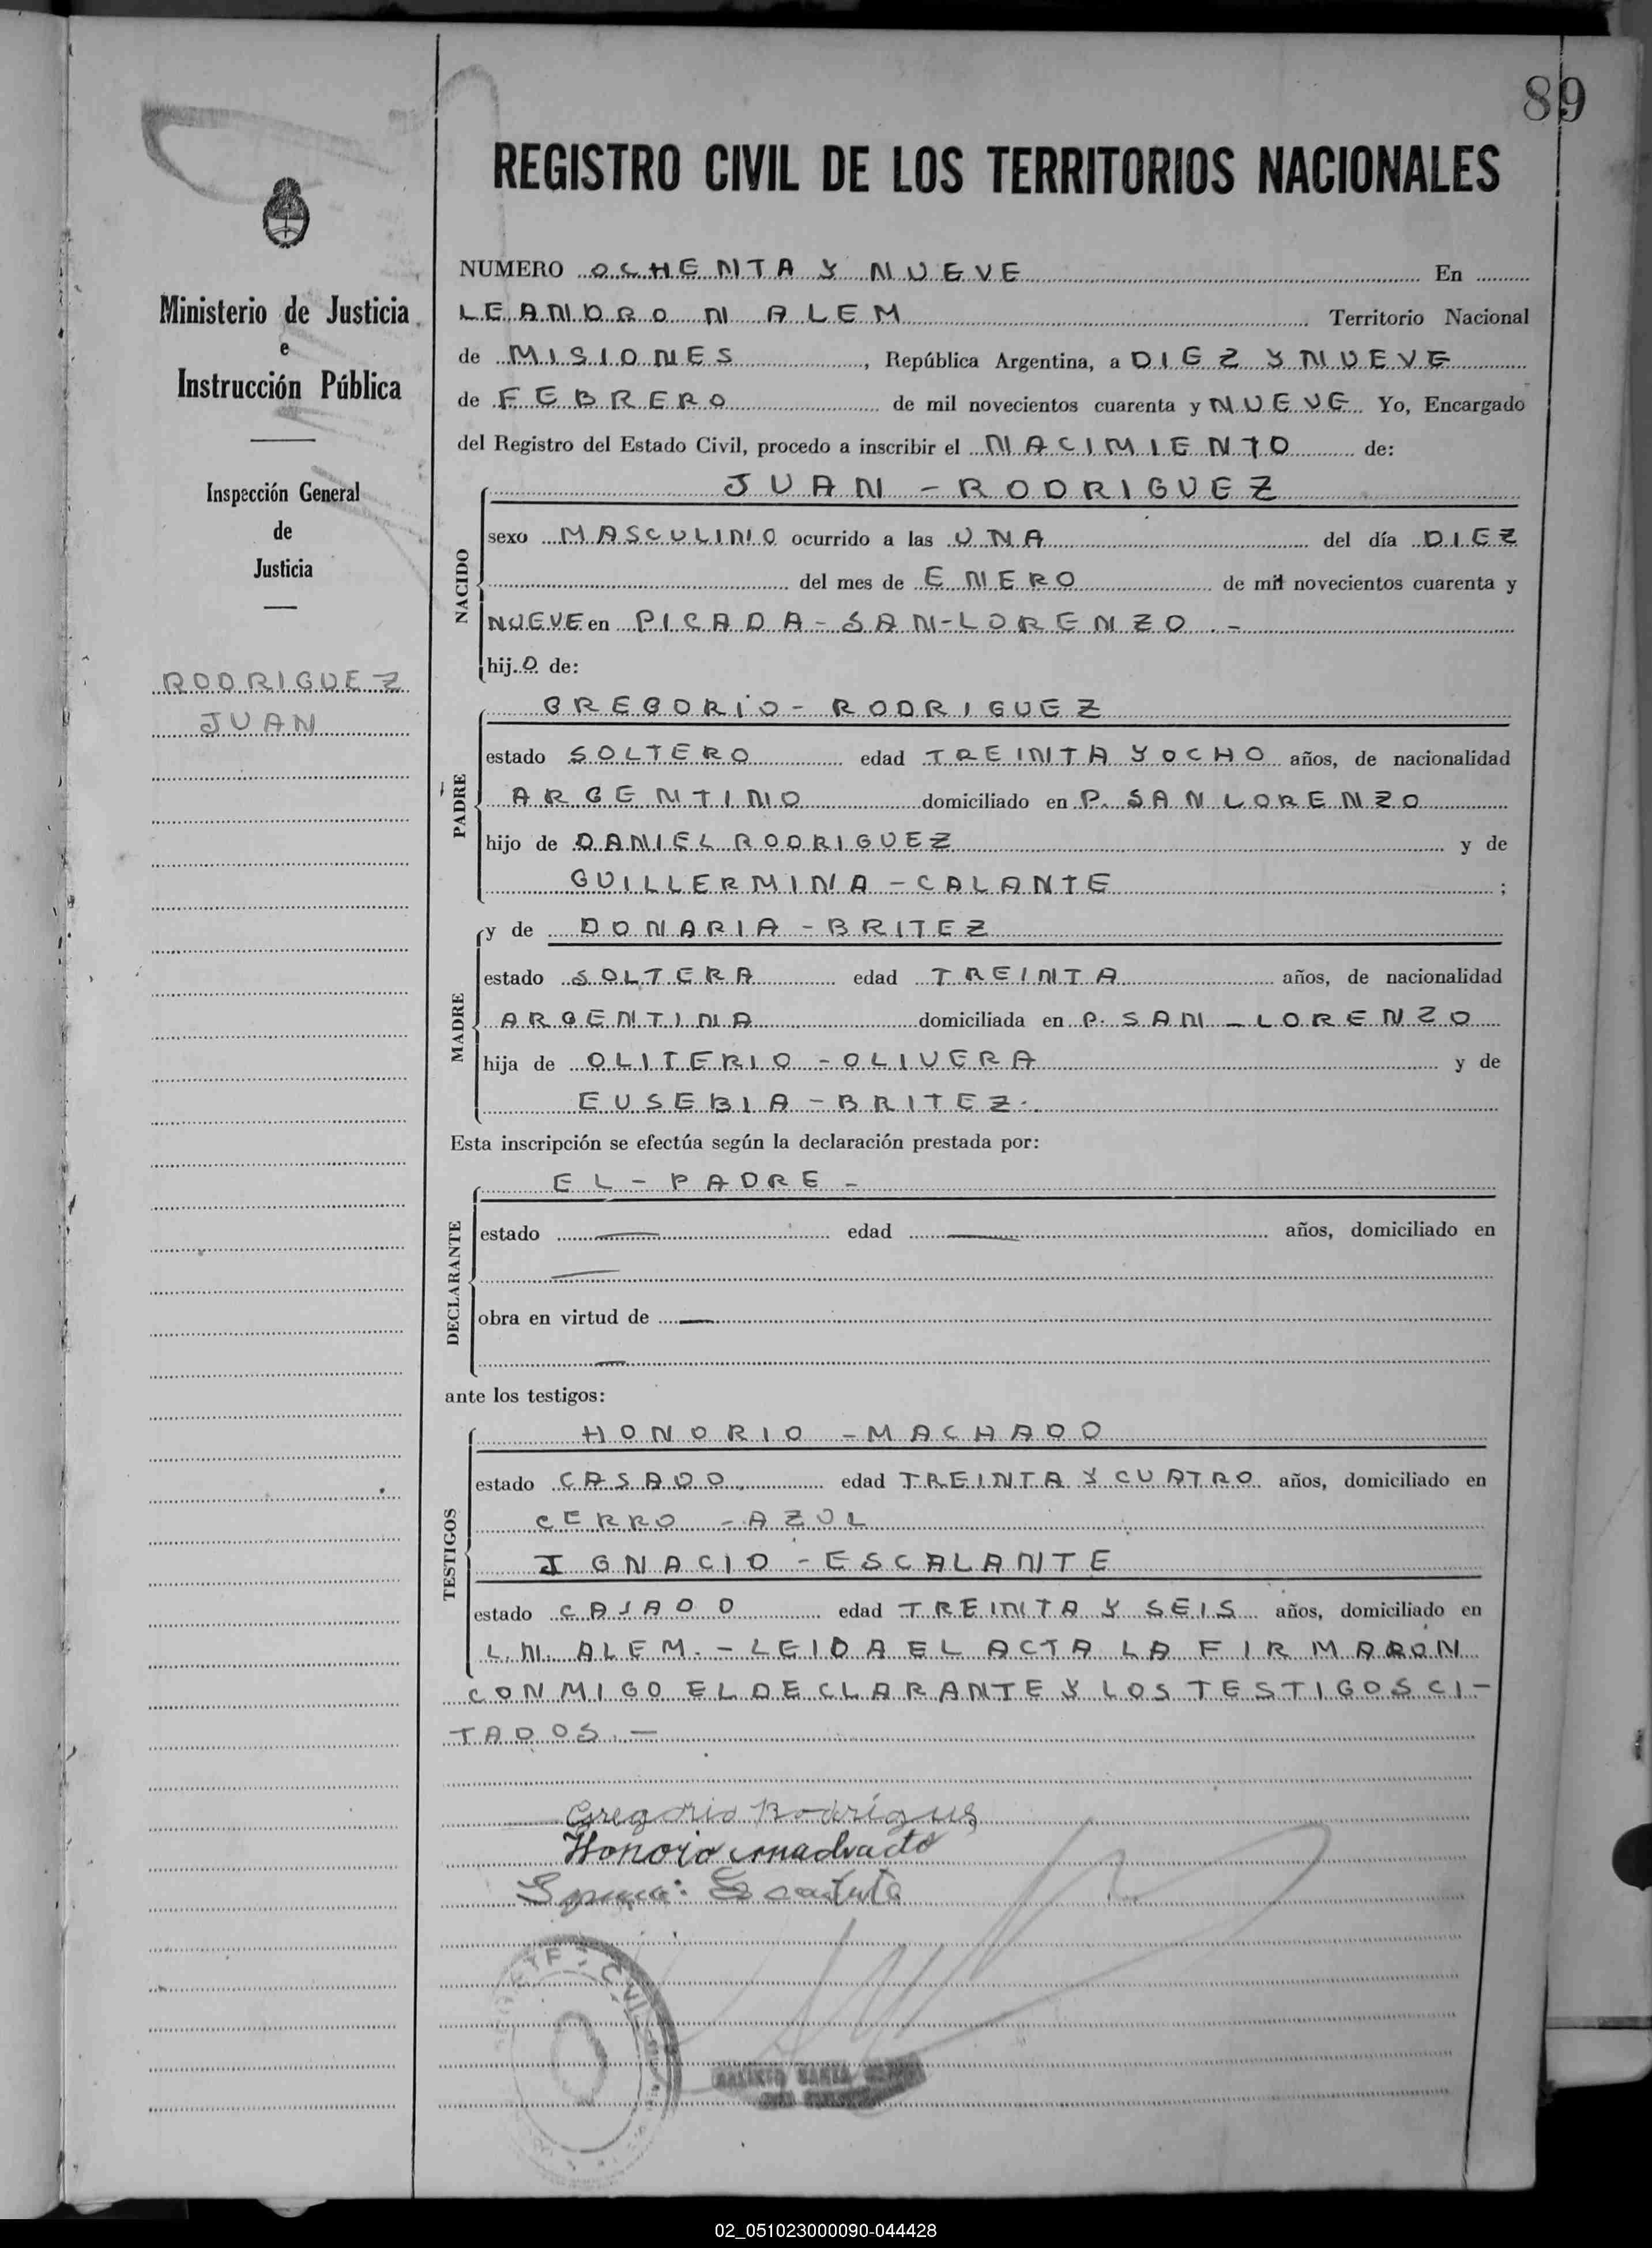 89
REGISTRO CIVIL DE LOS TERRITORIOS NACIONALES
Ministerio de Justicia
e
Instrucción Pública
Inspección General
de
Justicia
RODRIGUEZ
JUAN
NUMERO OCHENTA Y NUEVE En
LEANDRO N ALEM Territorio Nacional
de MISIONES, República Argentina, a DIEZ Y NUEVE
de FEBRERO de mil novecientos cuarenta y NUEVE Yo, Encargado
del Registro del Estado Civil, procedo a inscribir el NACIMIENTO de:
NACIDO
JUAN - RODRIGUEZ
sexo MASCULINO ocurrido a las UNA del día DIEZ
del mes de ENERO de mil novecientos cuarenta y
NUEVE en PICADA - SAN - LORENZO . -
hijO de:
PADRE
GREGORIO - RODRIGUEZ
estado SOLTERO edad TREINTA Y OCHO años, de nacionalidad
ARGENTINO domiciliado en P. SAN LORENZO
hijo de DANIEL RODRIGUEZ y de
GUILLERMINA - CALANTE ;
MADRE
y de DONARIA - BRITEZ
estado SOLTERA edad TREINTA años, de nacionalidad
ARGENTINA domiciliada en P. SAN - LORENZO
hija de OLITERIO - OLIVERA y de
EUSEBIA - BRITEZ.
Esta inscripción se efectúa según la declaración prestada por:
DECLARANTE
EL - PADRE -
estado — edad — años, domiciliado en
—
obra en virtud de —
—
ante los testigos:
TESTIGOS
HONORIO - MACHADO
estado CASADO edad TREINTA Y CUATRO años, domiciliado en
CERRO - AZUL
IGNACIO - ESCALANTE
estado CASADO edad TREINTA Y SEIS años, domiciliado en
L.N. ALEM. - LEIDA EL ACTA LA FIRMARON
CONMIGO EL DECLARANTE Y LOS TESTIGOS CI-
TADOS. -
Gregorio Rodrigues
Honorio machado
CIVIL
02_051023000090-044428